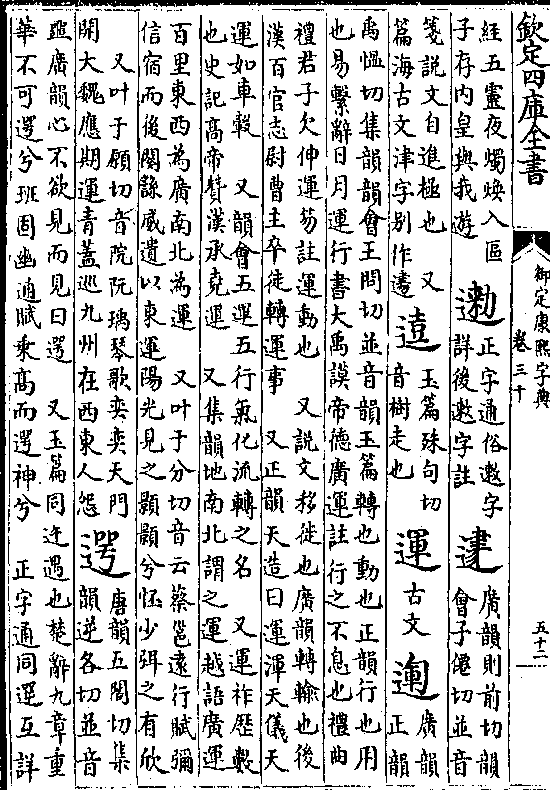 欽定四庫全書
御定康熙字典
卷三十
五十二
經五靈夜燭煥入區
子存内皇與我遊
正字通俗遬字
詳後遬字註
廣韻則前切韻
會子僊切並音
箋說文自進極也 又
篇海古文津字別作
玉篇殊句切
音樹走也
運 古文
廣韻
正韻
禹愠切集韻韻會王問切並音韻玉篇轉也動也正韻行也用
也易繫辭日月運行書大禹謨帝德廣運註行之不息也禮曲
禮君子欠伸運笏註運動也 又說文移徙也廣韻轉輸也後
漢百官志尉曹主卒徒轉運事 又正韻天造曰運渾天儀天
運如車轂 又韻會五運五行氣化流轉之名 又運祚歷數
也史記髙帝贊漢承堯運 又集韻地南北謂之運越語廣運
百里東西為廣南北為運 又叶于分切音云蔡邕遠行賦彌
信宿而後闋謠威遺以東運陽光見之顥顥兮怪少弭之有欣
又叶于願切音院阮瑀琴歌奕奕天門
開大魏應期運青蓋巡九州在西東人怨
遌
唐韻五閣切集
韻逆各切並音
咢廣韻心不欲見而見曰遌 又玉篇同迕遇也楚辭九章重
華不可遌兮班固幽通賦乘髙而遌神兮 正字通同遻互詳